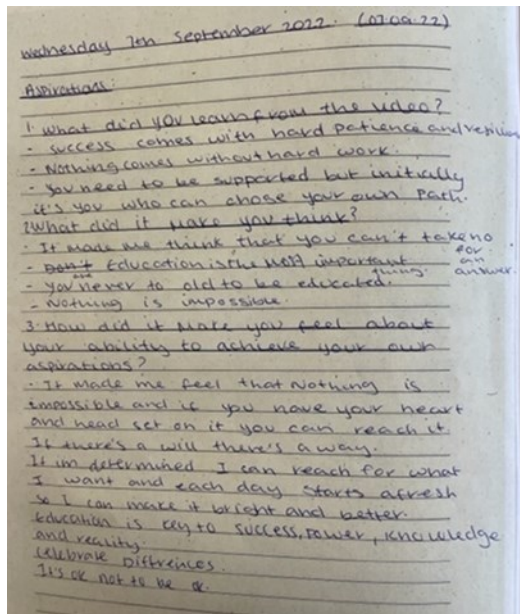 Wednesday 7th September 2022. (07.09.22)
Aspirations:
1. What did you learn from the video?
- success comes with hard patience and
- Nothing comes without hard work.
- You need to be supported but initially
it's you who can chose your own path.
2 What did it make you think?
- It made me think that you can't take no for an answer.
- Don't Education is the most important thing.
- You are never to old to be educated.
- Nothing is impossible.
3. How did it make you feel about
your ability to achieve your own
aspirations?
- It made me feel that Nothing is
impossible and if you have your heart
and head set on it you can reach it
If there's a will there's a way.
If im determined I can reach for what
I want and each day starts afresh
so I can make it bright and better.
Education is key to success, Power, Knowledge
and reality.
Celebrate Diffrences.
It's ok not to be ok.